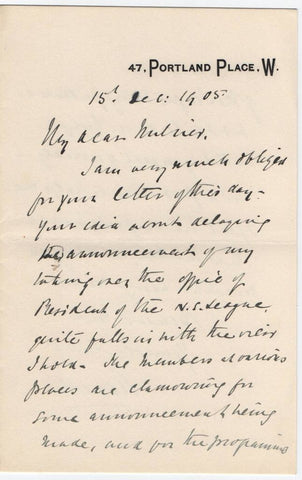 47, PORTLAND PLACE. W.
15th Dec: 1905
My dear Milner,
I am very much obliged
for your letter of this day -
Your idea about delaying
the announcement of my
taking over the office of
President of the N.S. League,
quite falls in with the view
I hold - The Members at various
places are clamouring for
some announcement being
made, and for the programme